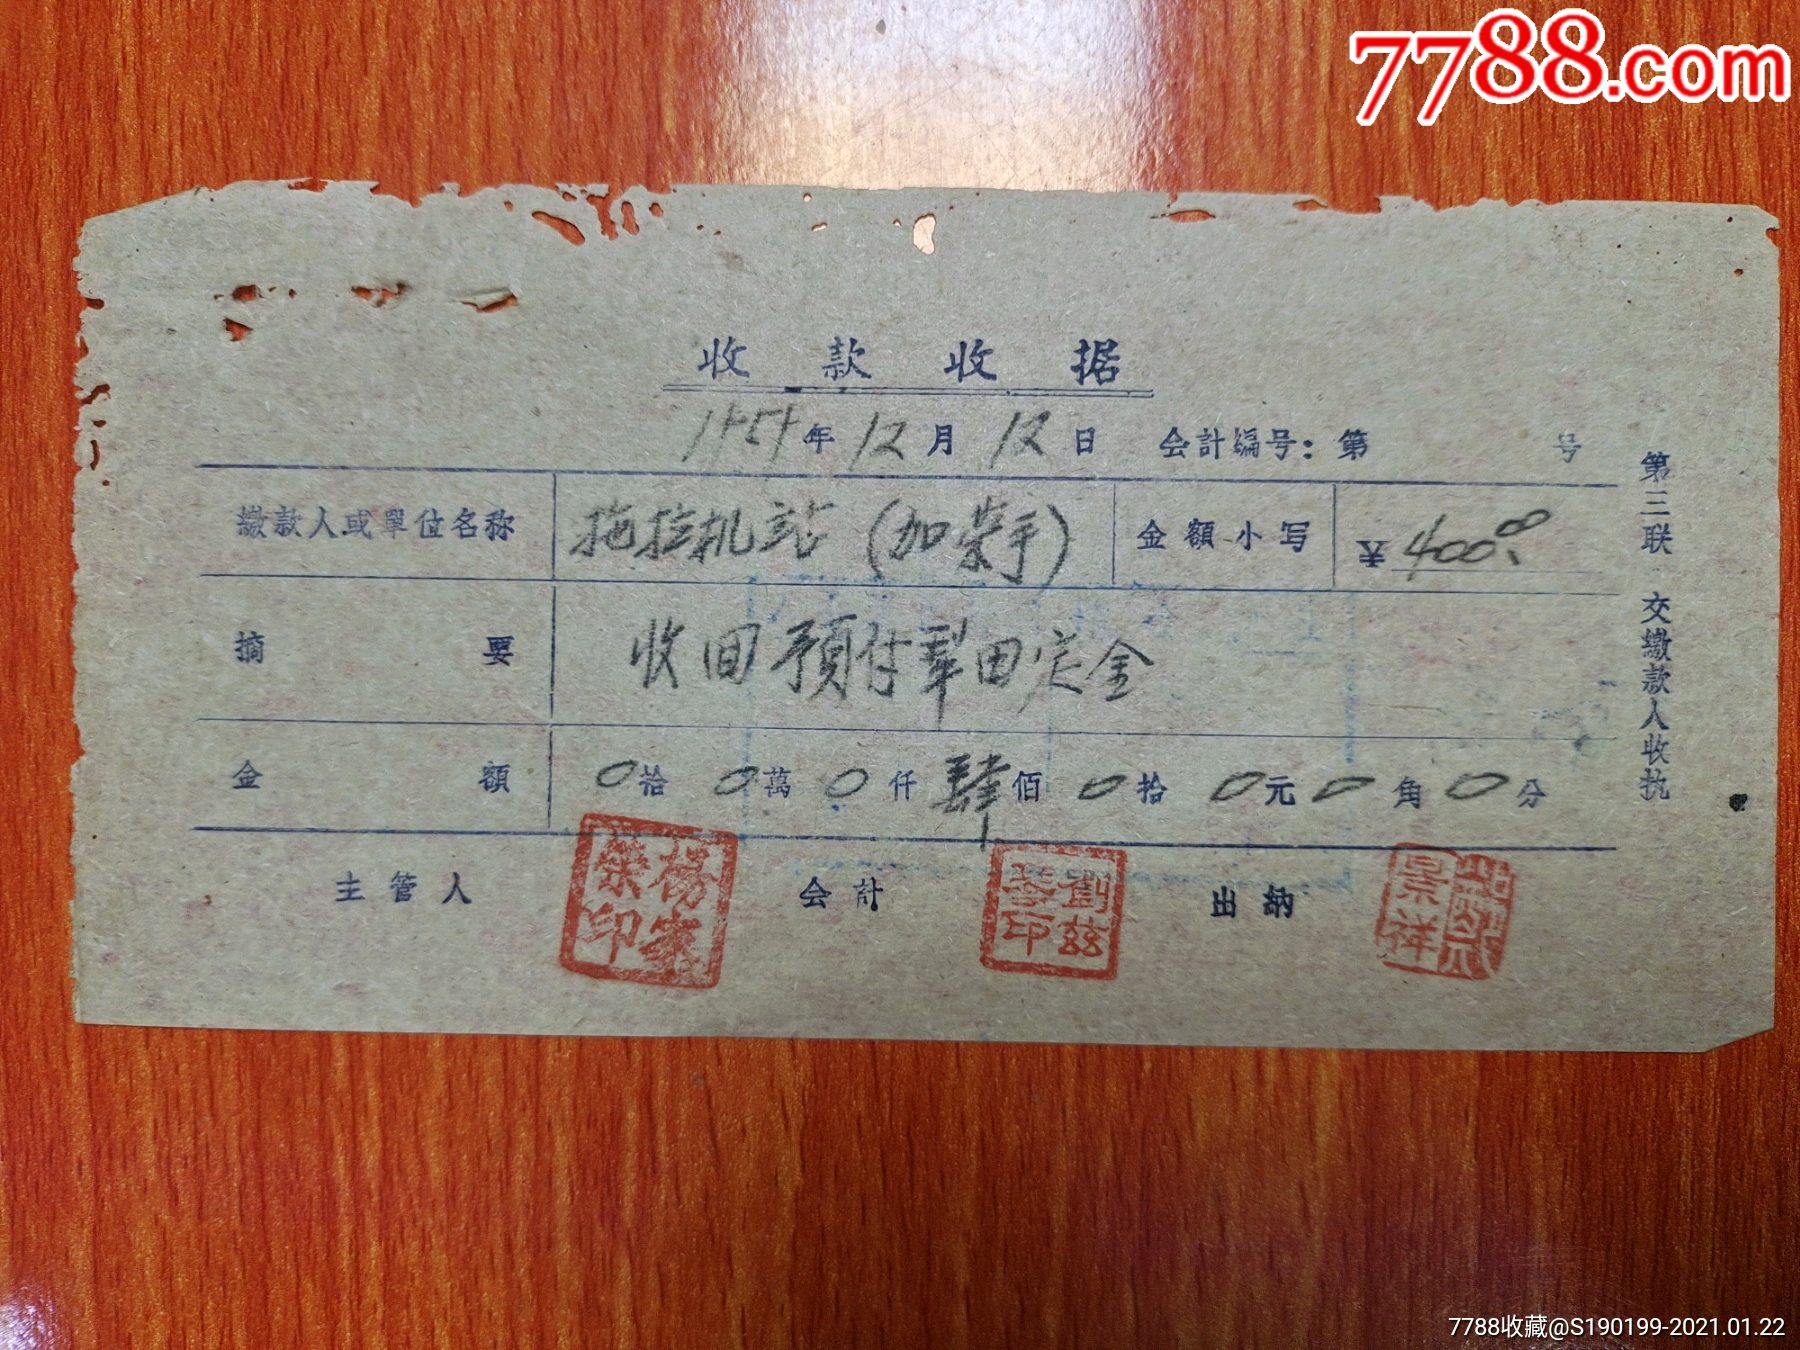 7788.com
收款收据
年12月12日 会計編号：第 号
繳款人或單位名称 拖拉机站（加荣手） 金額小写 400.00
摘要 收回預付犁田定金
金額 0拾0萬0仟肆佰0拾0元0角0分
主管人 会計 出納
楊家榮印
劉兹印
景祥
第三联 交繳款人收执
7788收藏@S190199-2021.01.22